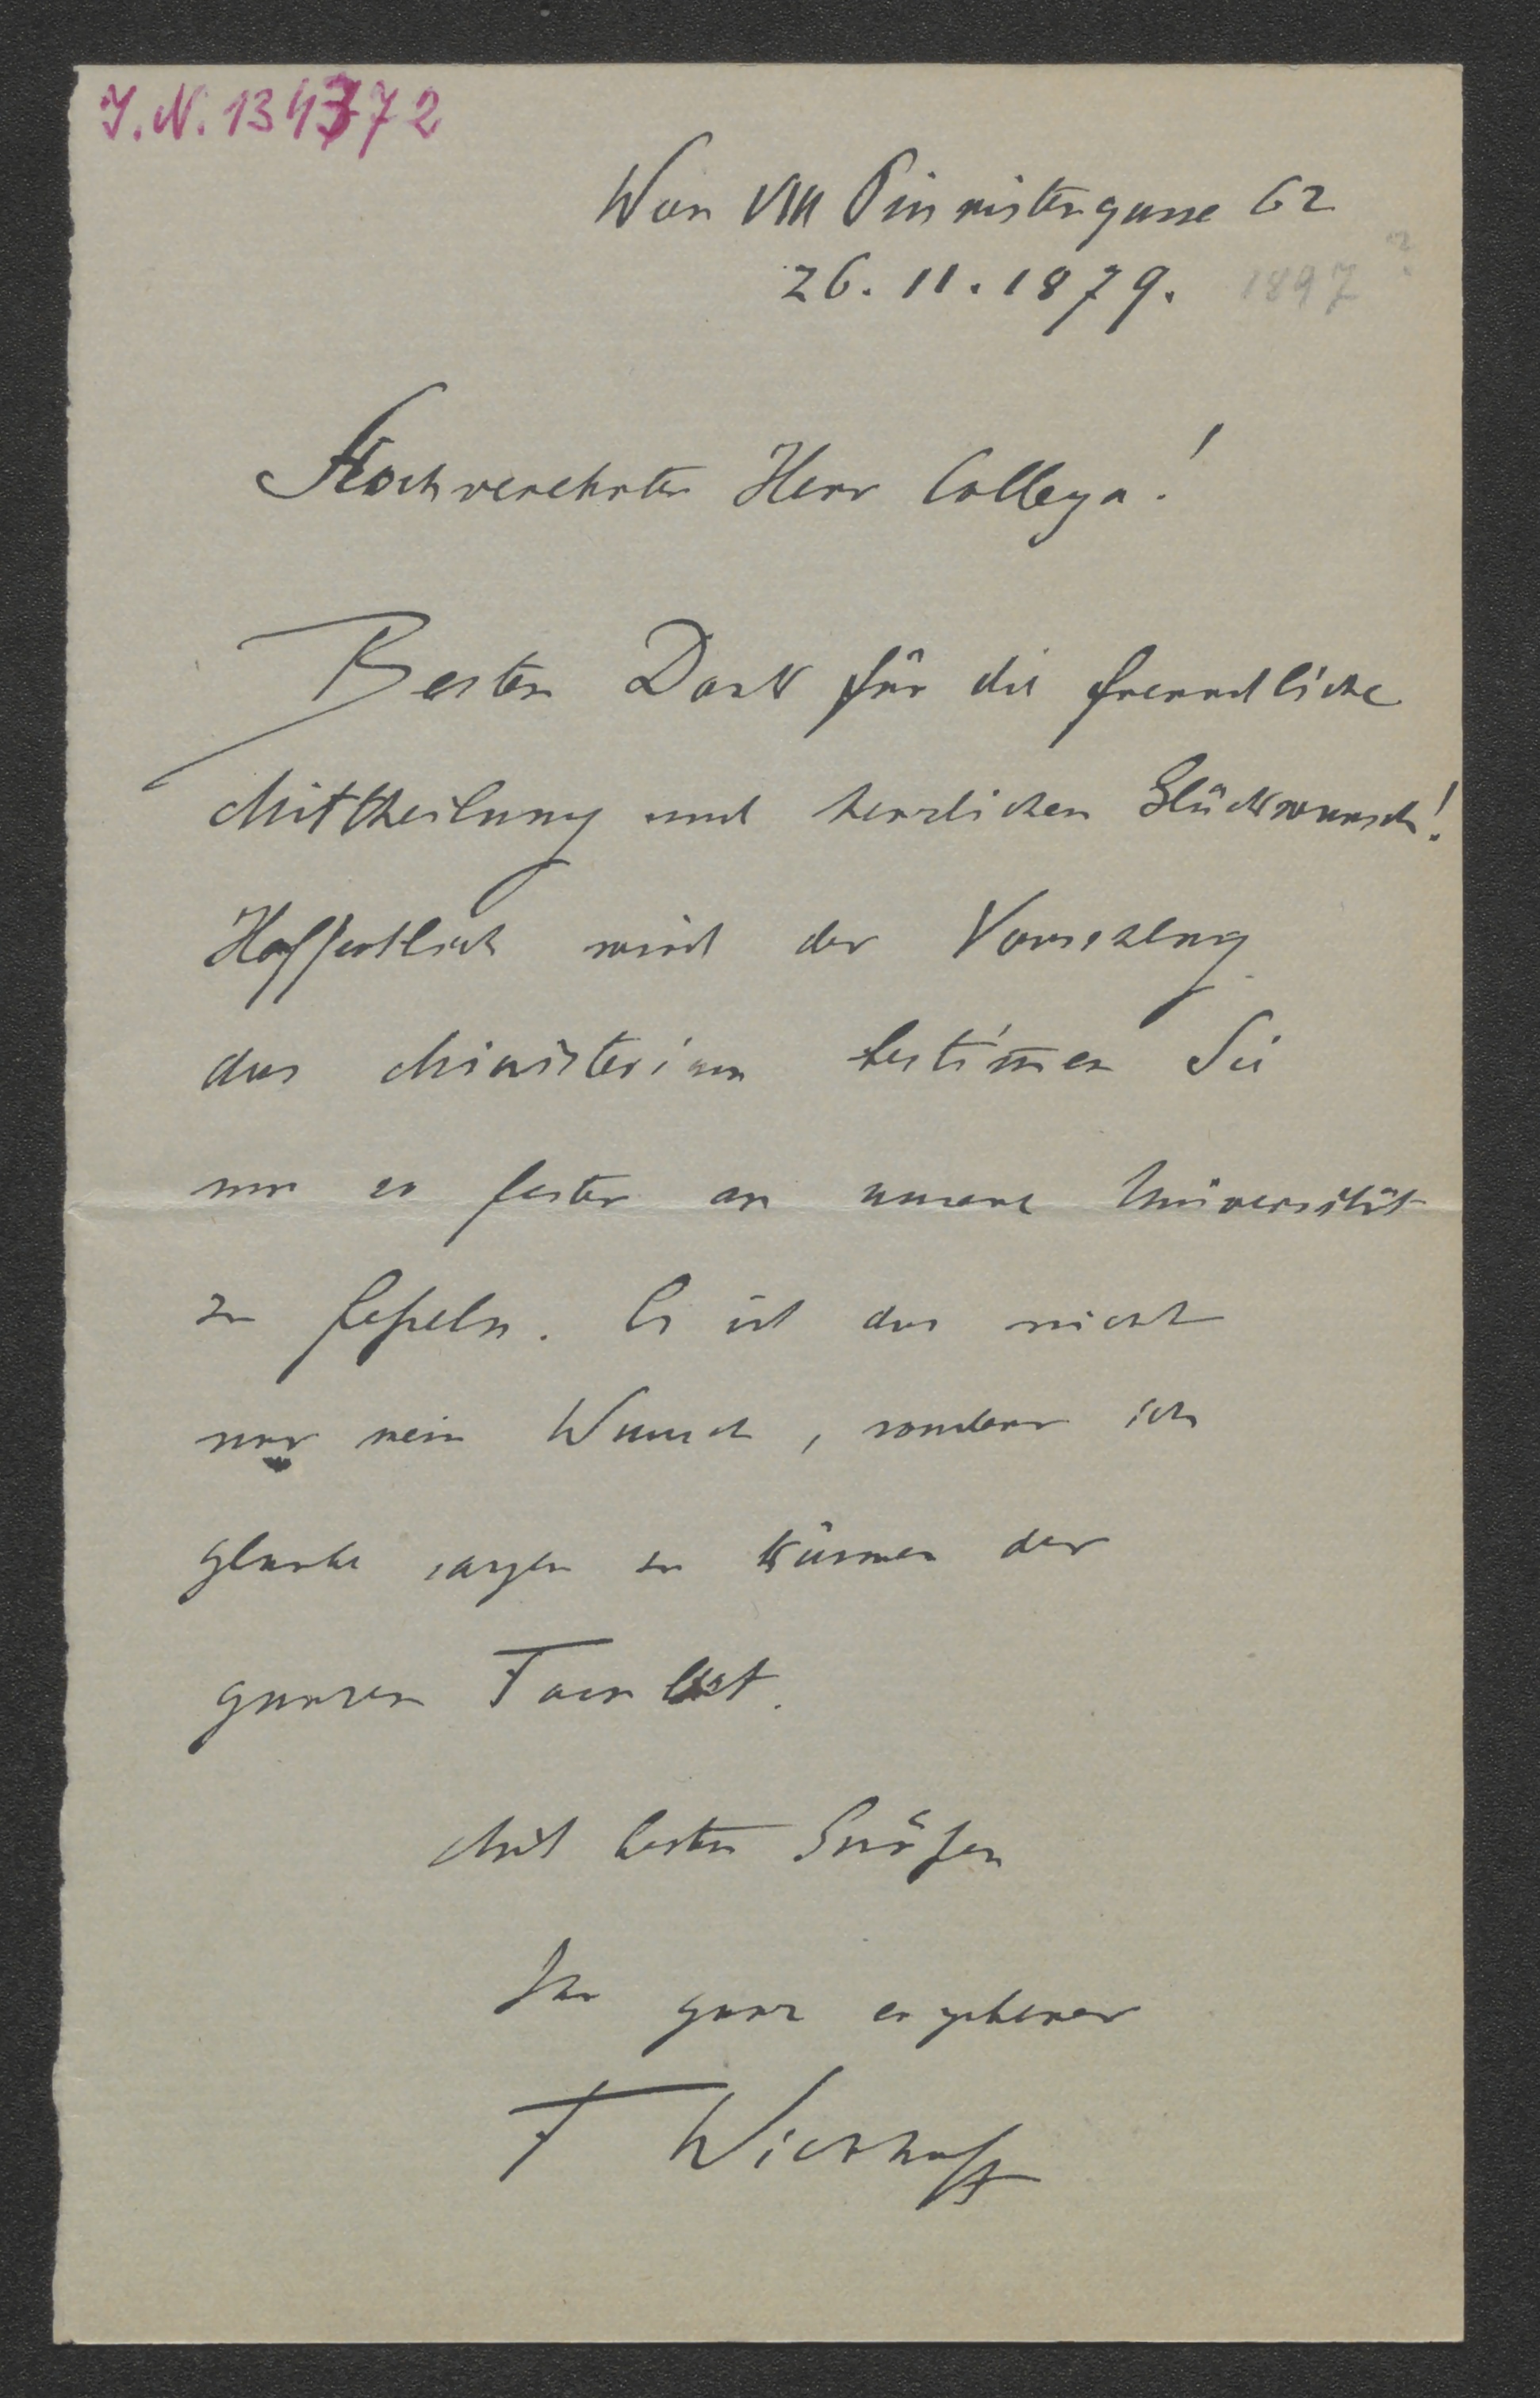 J.N. 134372
Wien VIII Piaristengasse 62
26. 11. 1879. 1897 ?
Hochverehrter Herr Collega!
Besten Dank für die freundliche
Mittheilung und herzlichen Glückwunsch!
Hoffentlich wird der
das Ministerium bestim̄en Sie
um so fester an unsere Universität
zu feßeln. Es ist das nicht
nur mein Wunsch, sondern ich
glaube sagen zu können der
ganzen Facultät.
Mit besten Grüßen
Ihr ganz ergebener
F Wickhoff